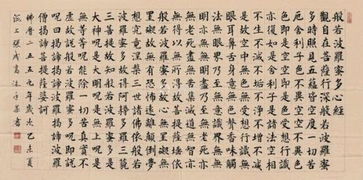 般若波羅蜜多心經
觀自在菩薩行深般若波羅
蜜多時照見五蘊皆空度一切苦
厄舍利子色不異空空不異色
色即是空空即是色受想行識
亦復如是舍利子是諸法空相
不生不滅不垢不淨不增不減
是故空中無色無受想行識無
眼耳鼻舌身意無色聲香味觸
法無眼界乃至無意識界無無
明亦無無明盡乃至無老死亦
無老死盡無苦集滅道無智亦
無得以無所得故菩提薩埵依
般若波羅蜜多故心無罣礙無
罣礙故無有恐怖遠離顛倒夢
想究竟涅槃三世諸佛依般若
波羅蜜多故得阿耨多羅三藐
三菩提故知般若波羅蜜多是
大神呪是大明呪是無上呪是
無等等呪能除一切苦真實不
虛故說般若波羅蜜多呪即說
呪曰揭諦揭諦波羅揭諦波羅
僧揭諦菩提薩婆訶
佛曆二五五九年歲次乙未夏